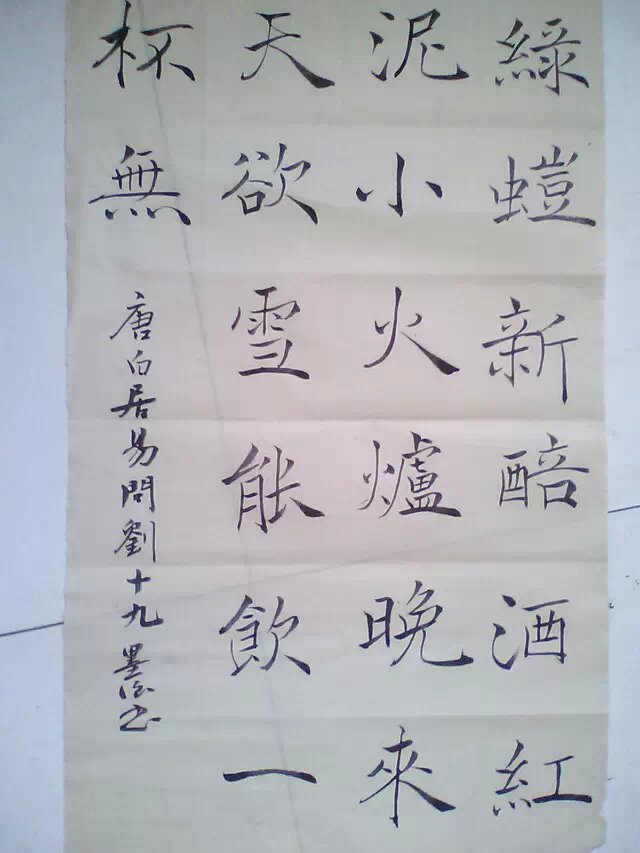 綠螘新醅酒紅
泥小火爐晚來
天欲雪能飲一
杯無
唐白居易問劉十九 墨海书